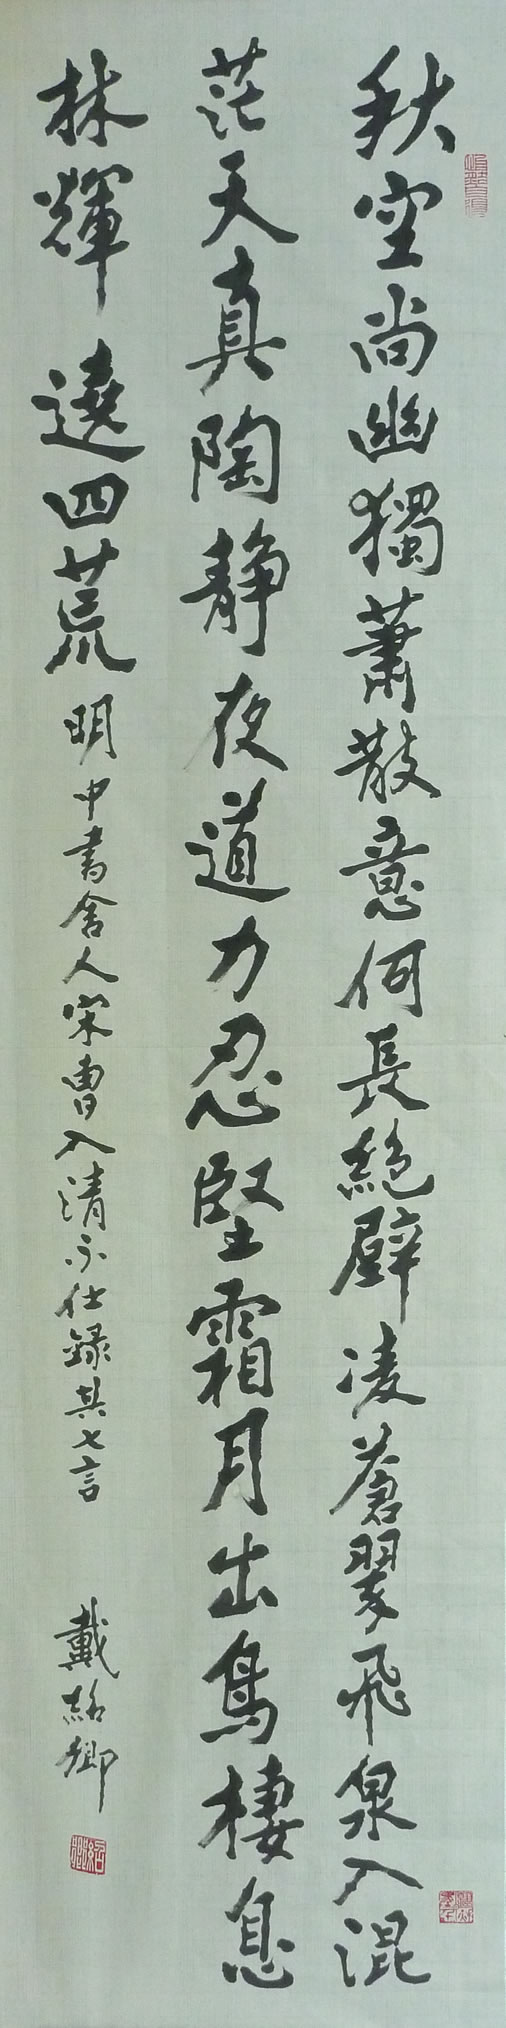 秋空尚幽獨蕭散意何長絕壁凌蒼翠飛泉入混
茫天真陶靜夜道力忍堅霜月出鳥棲息
林輝遶四荒明中書舍人宋曹入清不仕錄其七言
戴紹卿